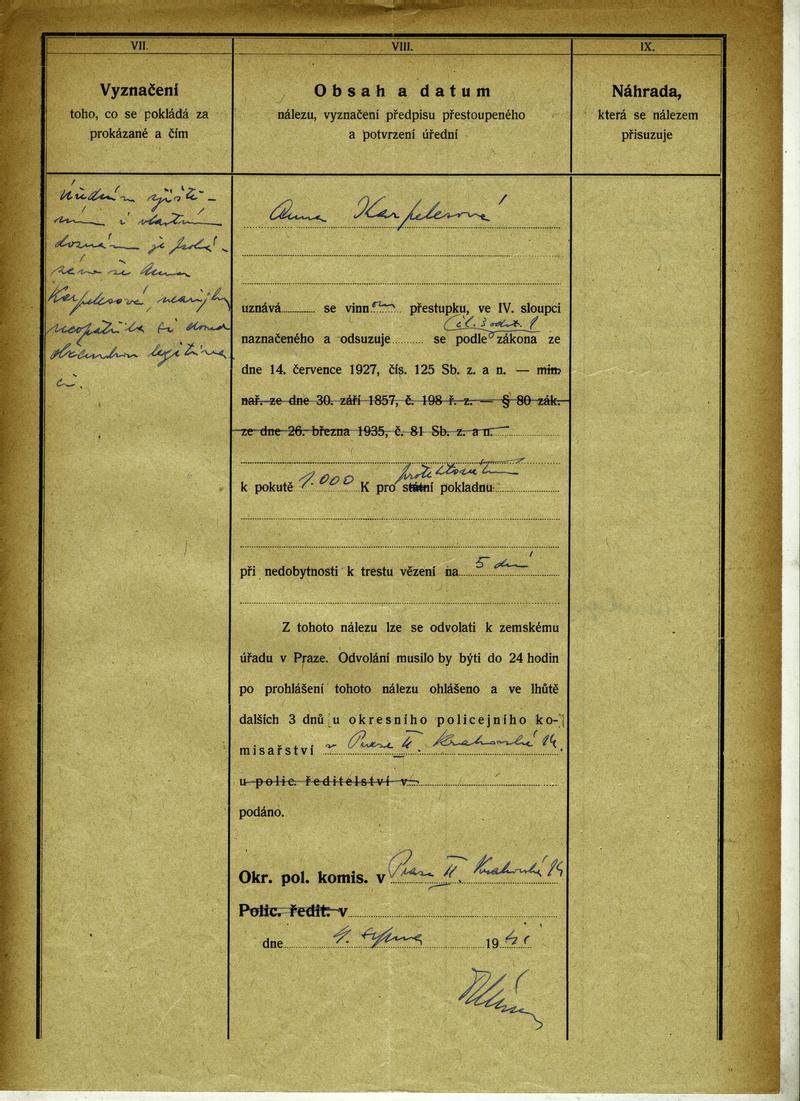 VII.
Vyznačení
toho, co se pokládá za
prokázané a čím
Úředním zjiště-
ním i vlastním
doznáním je proká-
záno že Anna
Karpelesová,
neopatřila si
občanskou legitima
ci.
VIII.
Obsah a datum
nálezu, vyznačení předpisu přestoupeného
a potvrzení úřední
Anna Karpelesová
uznává se vinnou přestupku, ve IV. sloupci
čl. 3 odst. 1
naznačeného a odsuzuje se podle zákona ze
dne 14. července 1927, čís. 125 Sb. z. a n. — min.
nař. ze dne 30. září 1857, č. 198 ř. z. — § 80 zák.
ze dne 26. března 1935, č. 81 Sb. z. a n.
protektorátní
k pokutě 1.000 K pro státní pokladnu
při nedobytnosti k trestu vězení na 5 dní
Z tohoto nálezu lze se odvolati k zemskému
úřadu v Praze. Odvolání musilo by býti do 24 hodin
po prohlášení tohoto nálezu ohlášeno a ve lhůtě
dalších 3 dnů u okresního policejního ko-
misařství v Praze II. Krakovská 14.
u polic. ředitelství v
podáno.
Okr. pol. komis. v Praze II. Krakovská 14
Polic. ředit. v
dne 4. srpna 19
IX.
Náhrada,
která se nálezem
přisuzuje